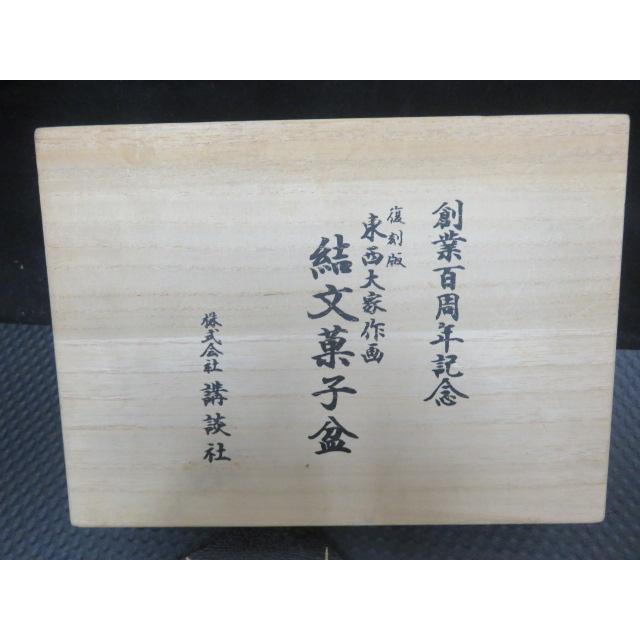 創業百周年記念
復刻版
東西大家作画
結文菓子盆
株式会社 講談社